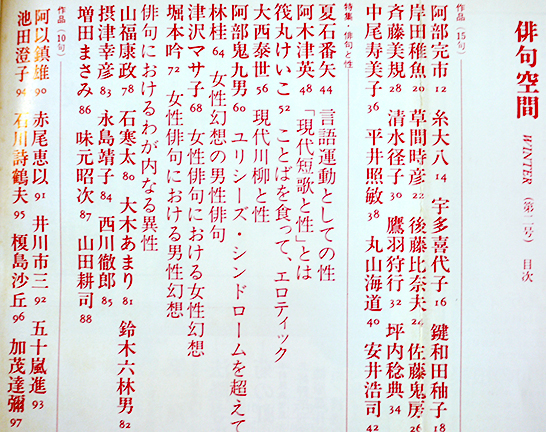 俳句空間 WINTER（第二号） 目次
作品（15句）
阿部完市 12 糸大八 14 宇多喜代子 16 鍵和田秞子 18
岸田稚魚 20 草間時彦 22 後藤比奈夫 24 佐藤鬼房 26
斉藤美規 28 清水径子 30 鷹羽狩行 32 坪内稔典 34
中尾寿美子 36 平井照敏 38 丸山海道 40 安井浩司 42
特集・俳句と性
夏石番矢 44 言語運動としての性
阿木津英 48 「現代短歌と性」とは
筏丸けいこ 52 ことばを食って、エロティック
大西泰世 56 現代川柳と性
阿部鬼九男 60 ユリシーズ・シンドロームを超えて
林桂 64 女性幻想の男性俳句
津沢マサ子 68 女性俳句における女性幻想
堀本吟 72 女性俳句における男性幻想
俳句におけるわが内なる異性
山福康政 78 石寒太 80 大木あまり 81 鈴木六林男 82
摂津幸彦 83 永島靖子 84 西川徹郎 85
増田まさみ 86 味元昭次 87 山田耕司 88
作品（10句）
阿以鎮雄 90 赤尾恵以 91 井川市三 92 五十嵐進 93
池田澄子 94 石川詩鶴夫 95 榎島沙丘 96 加茂達彌 97